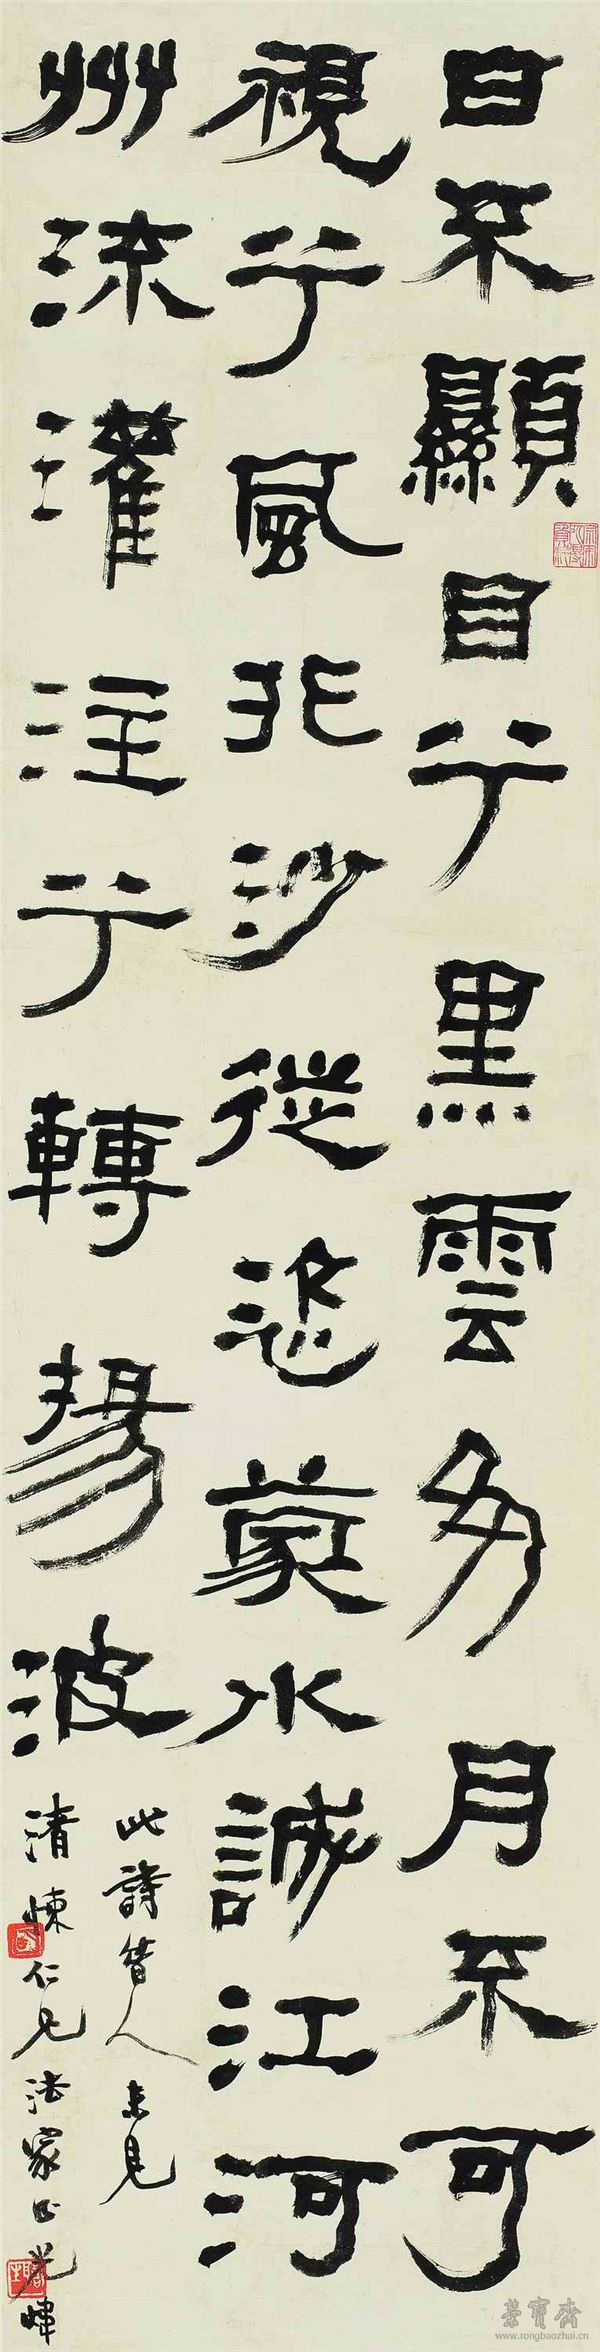 日不顯目兮黑雲多月不可
視兮風非沙從恣蒙水誠江河
州流灌注兮轉揚波
此詩昔人未見
清悚仁兄法家正光煒
榮寶齋
www.rongbaozhai.cn